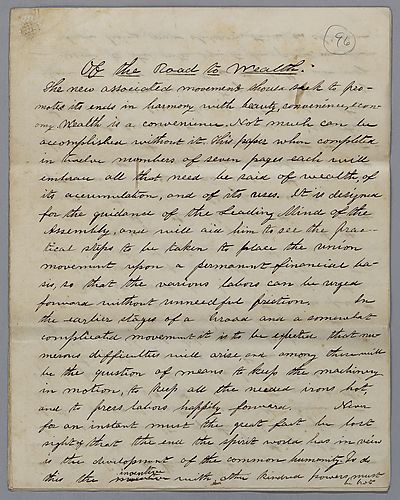 96
Of the Road to Wealth.
The new associated movement should seek to pro-
motes its ends in harmony with beauty, convenience, econ-
omy. Wealth is a convenience. Not much can be
accomplished without it. This paper when completed
in twelve numbers of seven pages each will
embrace all that need be said of wealth, of
its accumulation, and of its uses. It is designed
for the guidance of the Leading Mind of the
Assembly, and will aid him to see the prac-
tical steps to be taken to place the union
movement upon a permanent financial ba-
sis, so that the various labors can be urged
forward without unneedful friction. In
the earlier stages of a broad and a somewhat
complicated movement it is to be expected that nu-
merous difficulties will arise, and among them will
be the question of means to keep the machinery
in motion, to keep all the needed irons hot,
and to press labors happily forward. Never
for an instant must the great fact be lost
sight of that the end the spirit world has in view
is the development of the common humanity. To do
incentive
this the with other kindred powers must